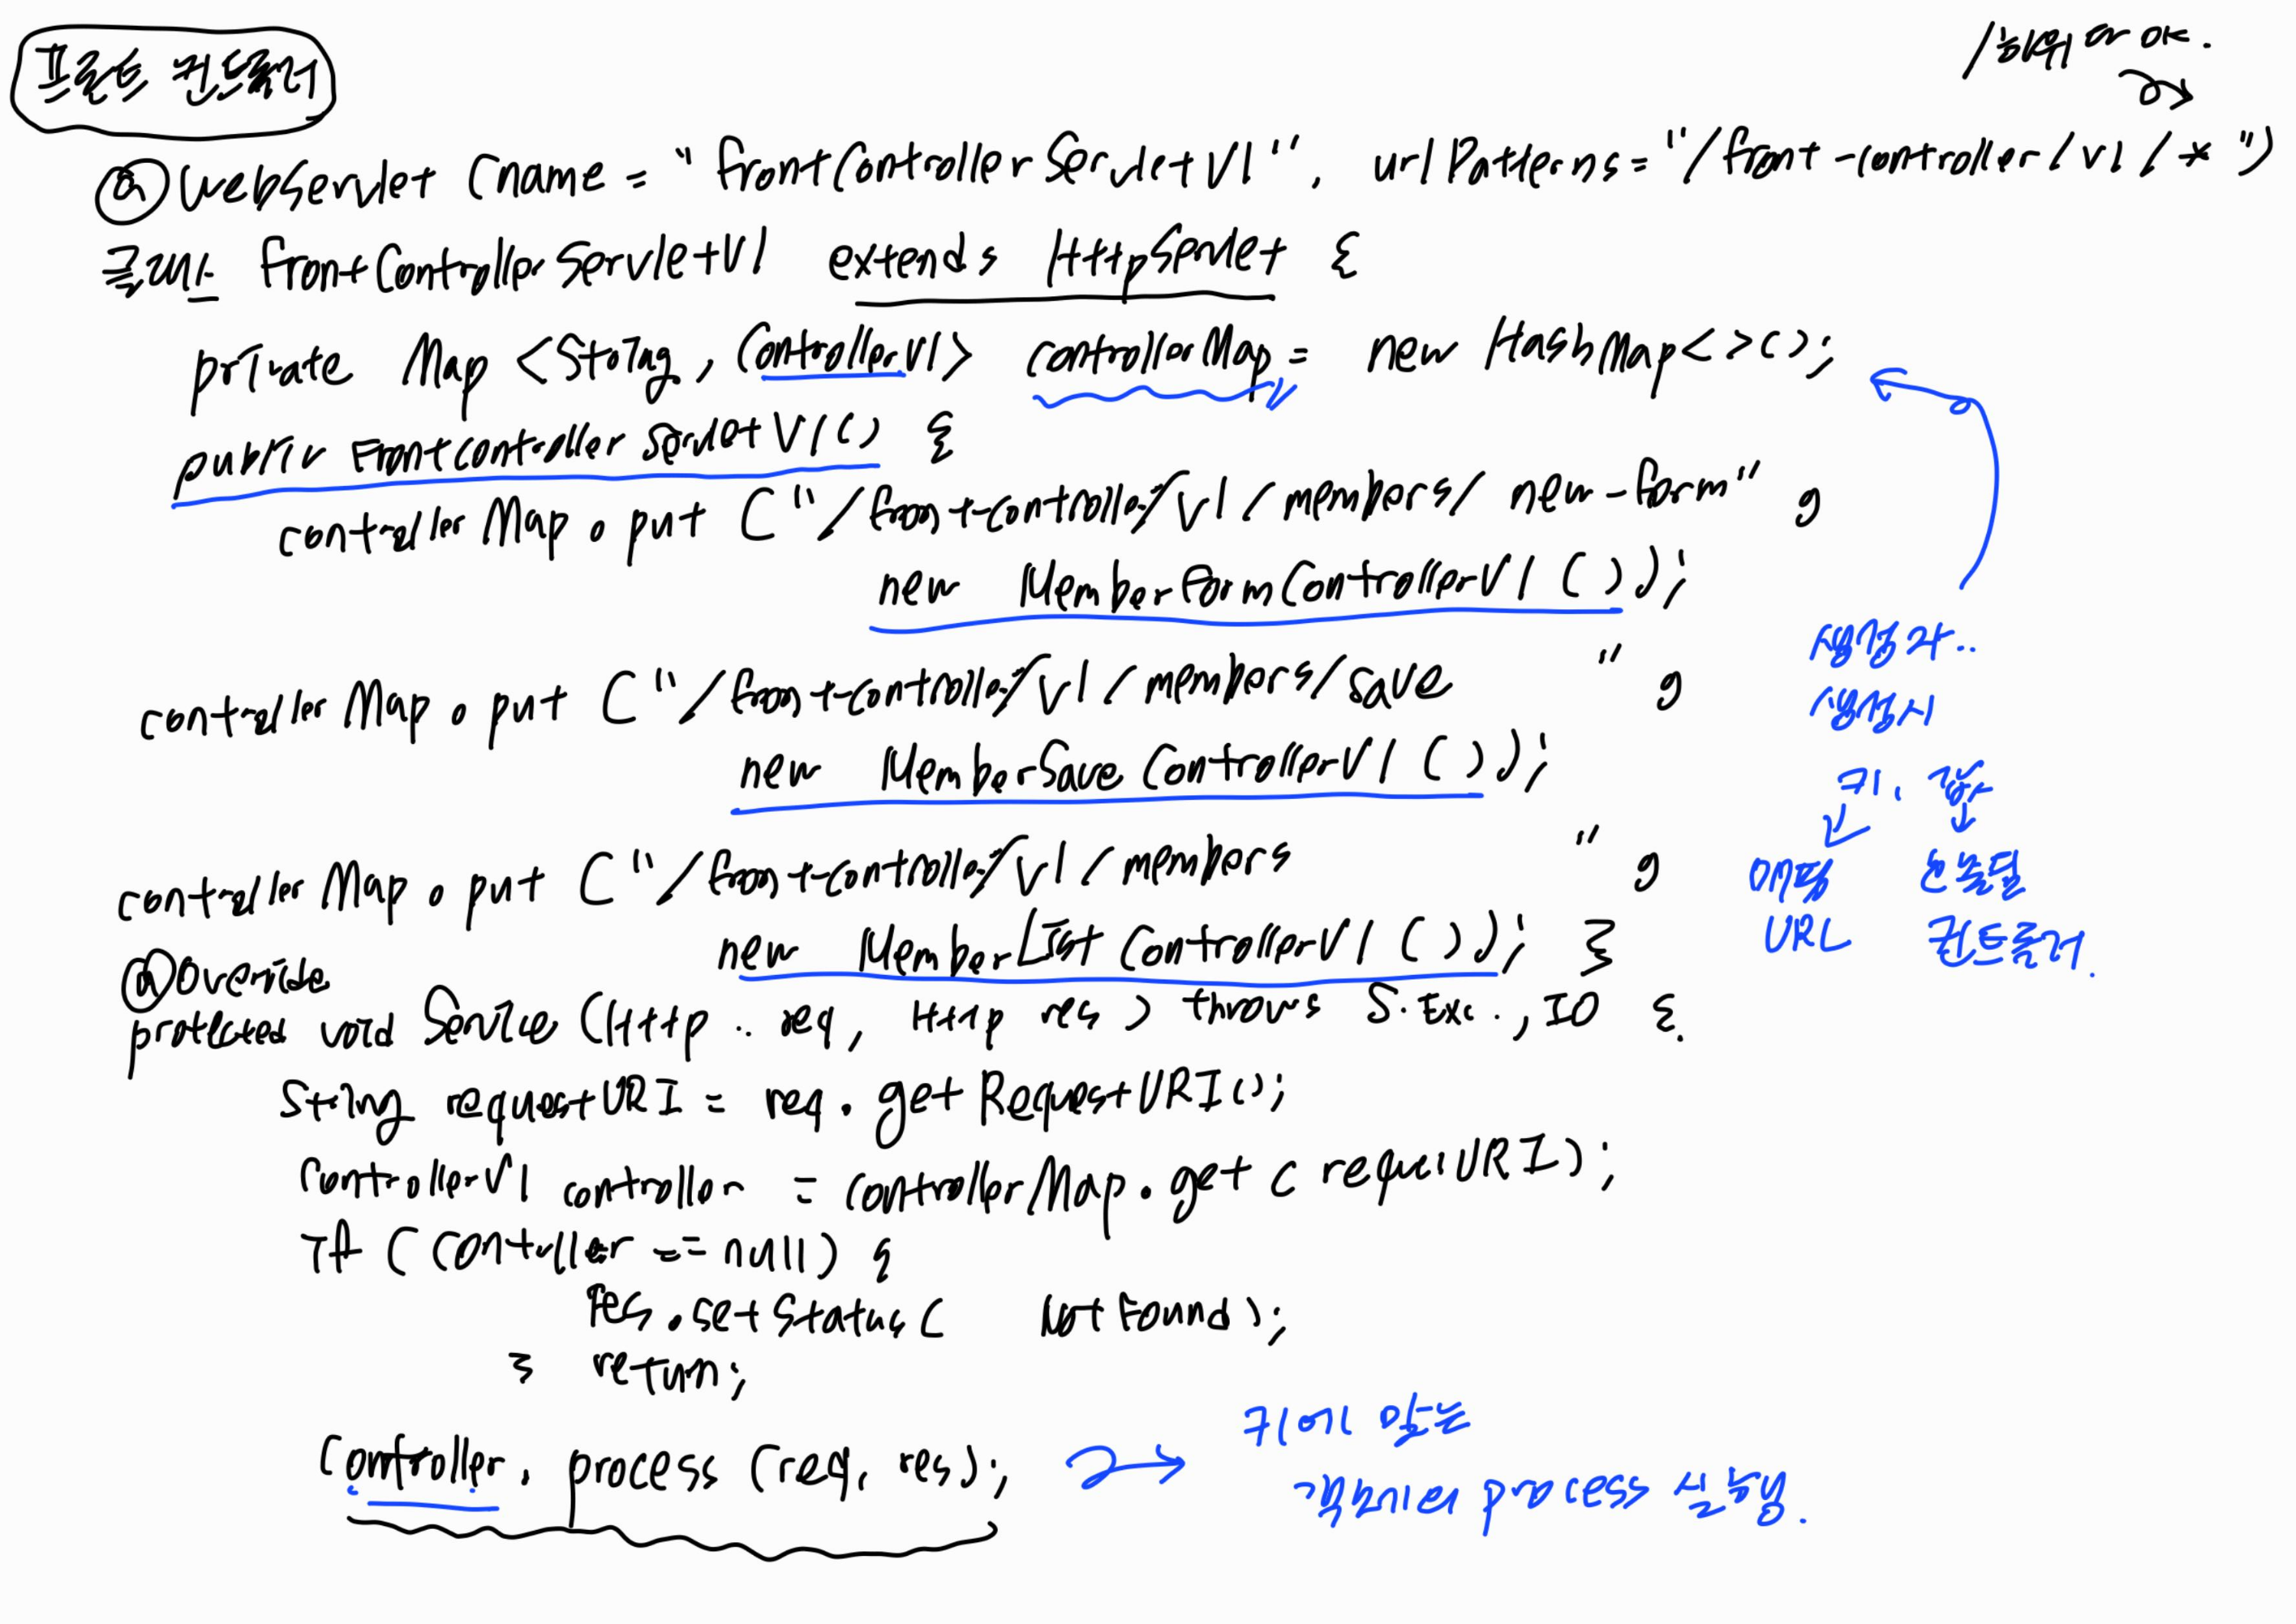 프론트 컨트롤러
/하위 다 OK.
@WebServlet (name = "frontControllerServletV1", urlPatterns="/front-controller/v1/*")
클래스 frontControllerServletV1 extends HttpServlet {
private Map <String, ControllerV1> controllerMap = new HashMap<>();
public FrontcontrollerServletV1() {
controllerMap.put("/front-controller/v1/members/new-form",
new MemberFormControllerV1());
controllerMap.put("/front-controller/v1/members/save",
new MemberSaveControllerV1());
controllerMap.put("/front-controller/v1/members",
new MemberListControllerV1()); }
생성자..
생성시
키, 값
매핑
URL
호출될
컨트롤러.
@Override
protected void Service (Http.. req, Http res) throws S.Exc., IO {
String requestURI = req.getRequestURI();
ControllerV1 controller = controllerMap.get(requeiURI);
if (controller == null) {
res.setStatus( Not Found);
} return;
Controller.process(req, res);
키에 맞는
객체의 process 실행.